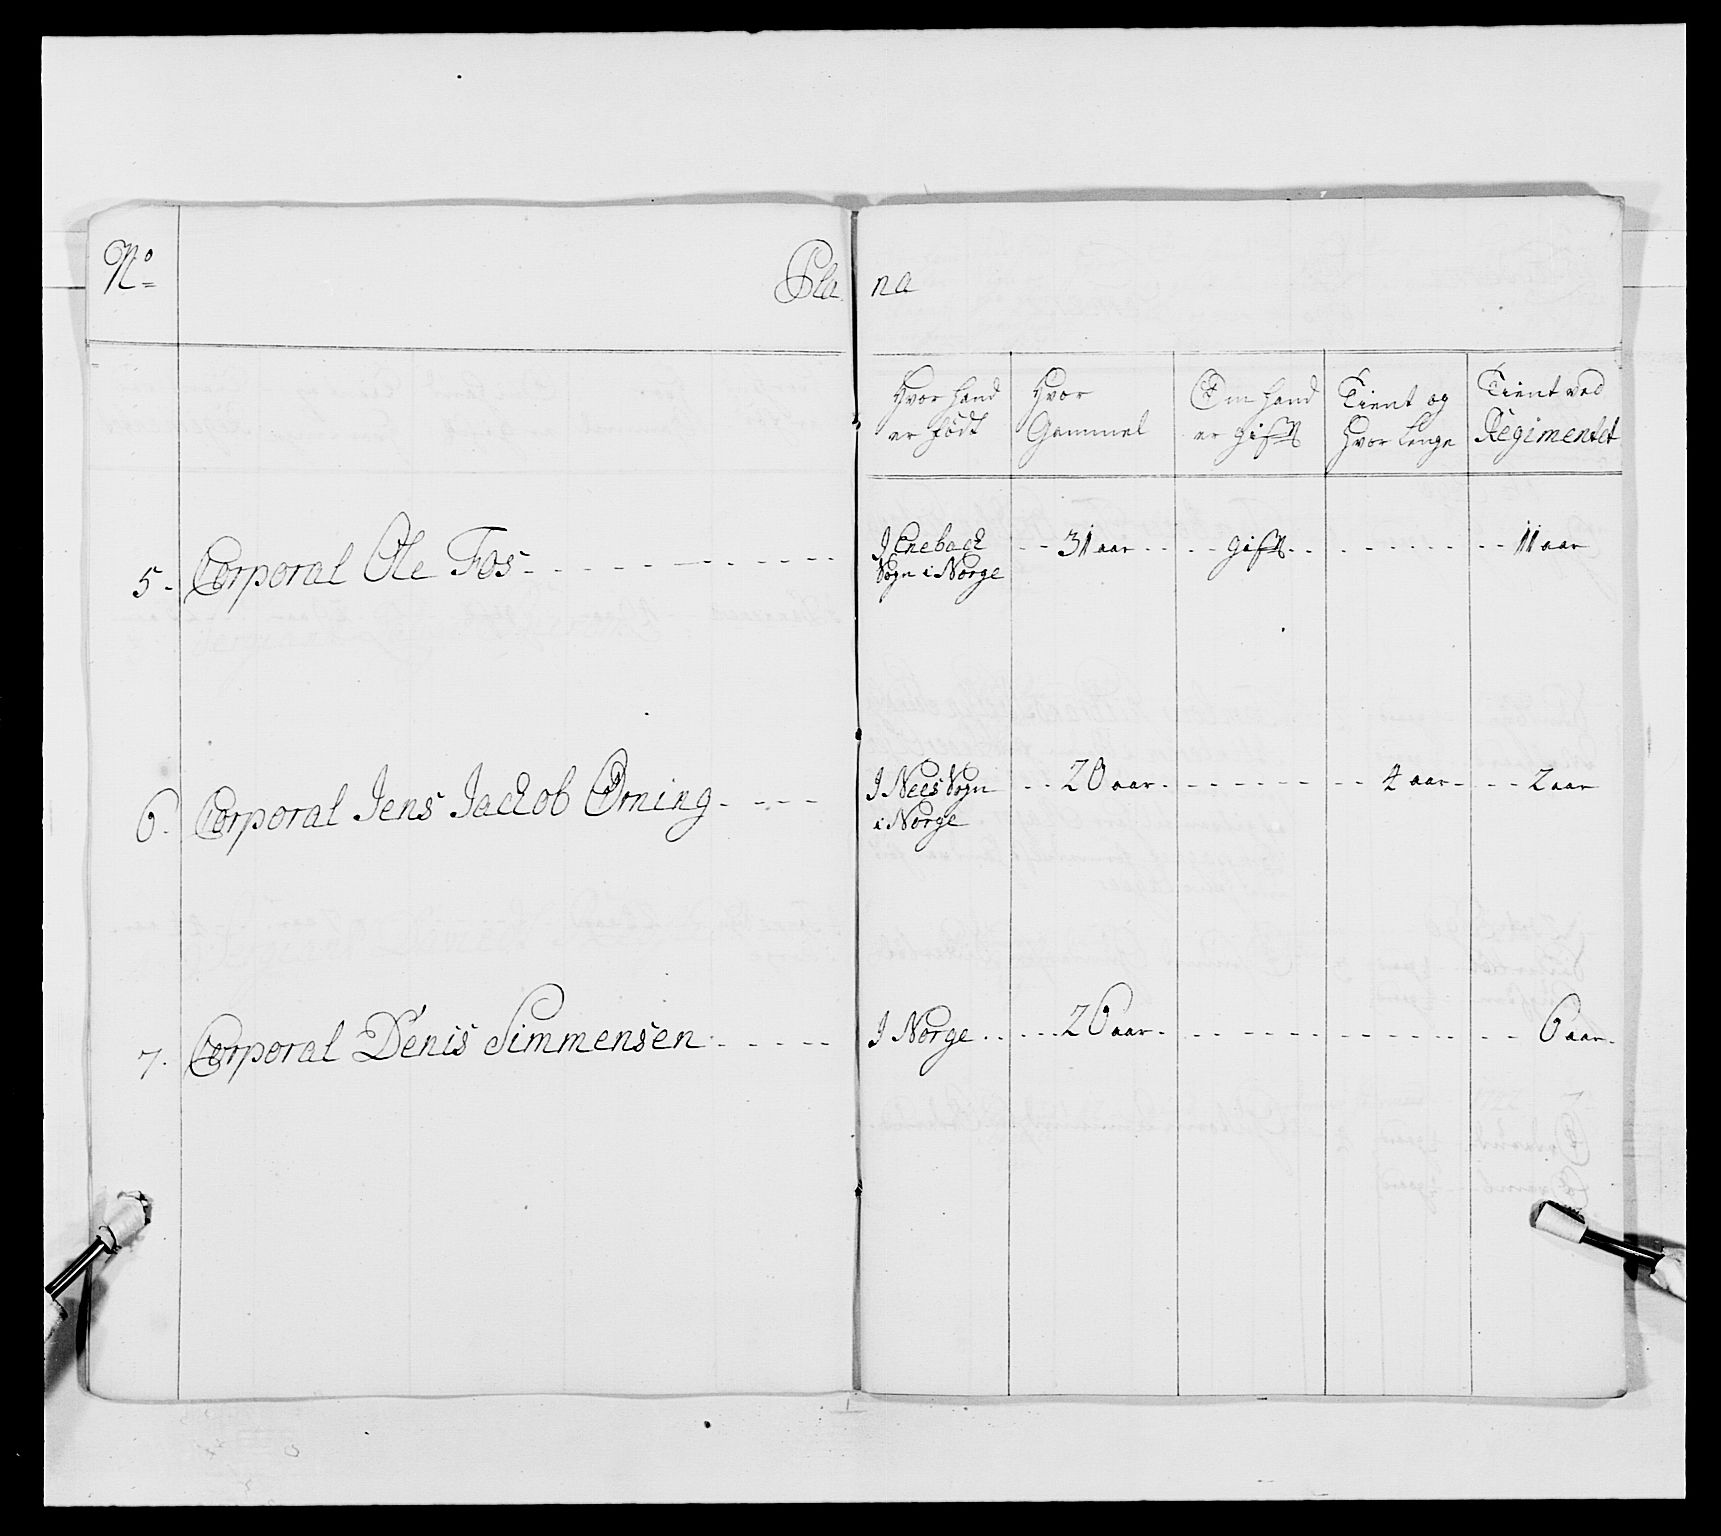 No
Pla na
Hvor hand er født
Hvor Gammel
Om hand er gift
Tient og Hvor lenge
Tient ved Regimentet
5. Corporal Ole Fos I Enebach Sogn i Norge 31 aar gift 11 aar
6. Corporal Jens Jackob Örning I Nees Sogn i Norge 20 aar 4 aar 2 aar
7. Corporal Denis Simmensen I Norge 26 aar 6 aar